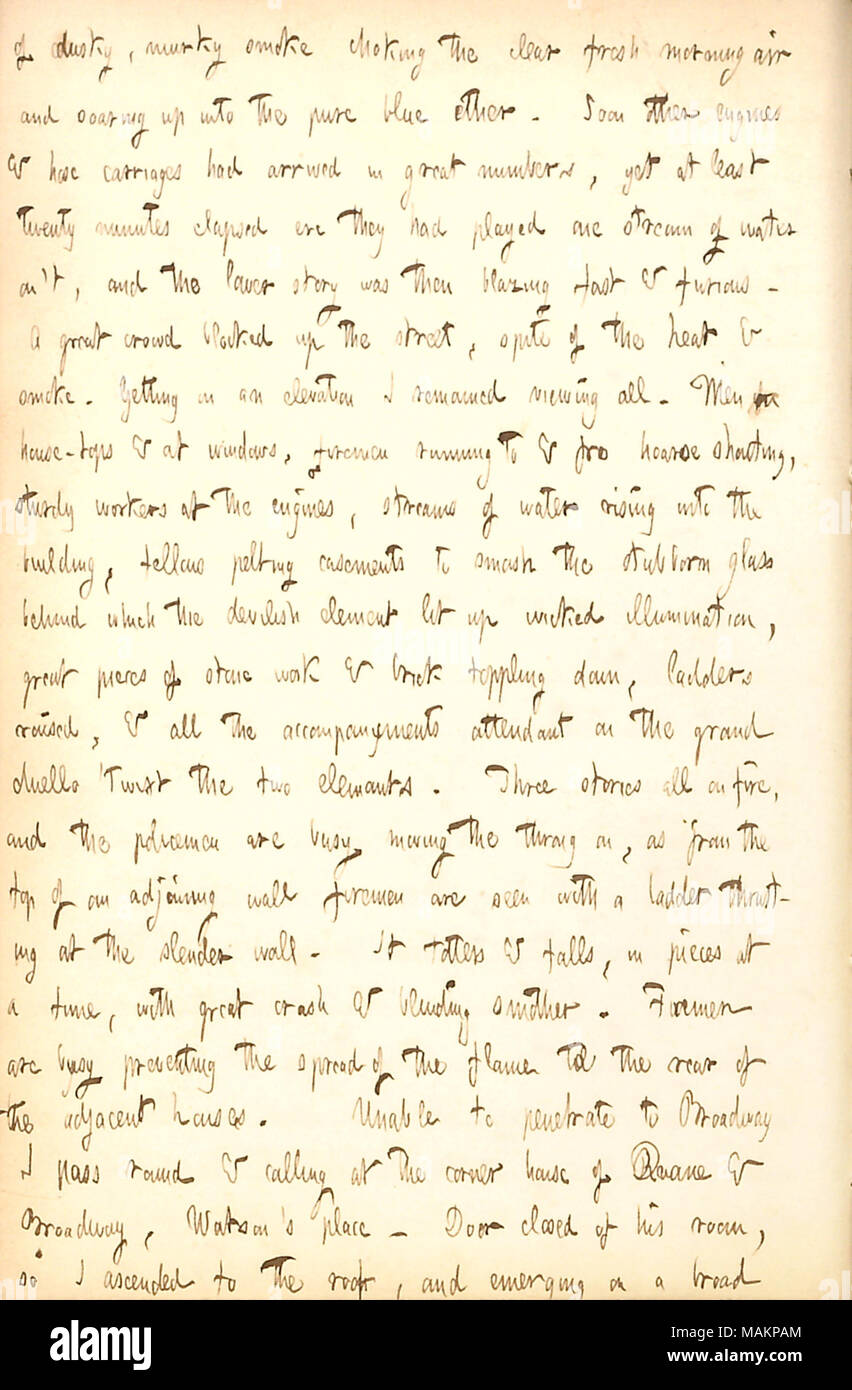 of dusky, murky smoke choking the clear fresh morning air
and soaring up into the pure blue ether. Soon other engines
& hose carriages had arrived in great numbers, yet at least
twenty minutes elapsed ere they had played one stream of water
on't, and the lower story was then blazing fast & furious -
A great crowd blocked up the street, spite of the heat &
smoke. Getting on an elevation I remained viewing all. Men on
house-tops & at windows, firemen running to & fro hoarse shouting,
sturdy workers at the engines, streams of water rising into the
building, fellows pelting casements to smash the stubborn glass
behind which the devilish element lit up wicked illumination,
great pieces of stone work & brick toppling down, ladders
raised, & all the accompanyments attendant on the grand
duello 'twixt the two elements. Three stories all on fire,
and the policemen are busy moving the throng on, as from the
top of an adjoining wall firemen are seen with a ladder thrust-
ing at the slender wall. It totters & falls, in pieces at
a time, with great crash & blinding smother. Firemen
are busy preventing the spread of the flame to the rear of
the adjacent houses. Unable to penetrate to Broadway
I pass round & calling at the corner house of Duane &
Broadway, Watson's place - Door closed of his room,
so I ascended to the roof, and emerging on a broad
alamy
Image ID: MAKPAM
www.alamy.com